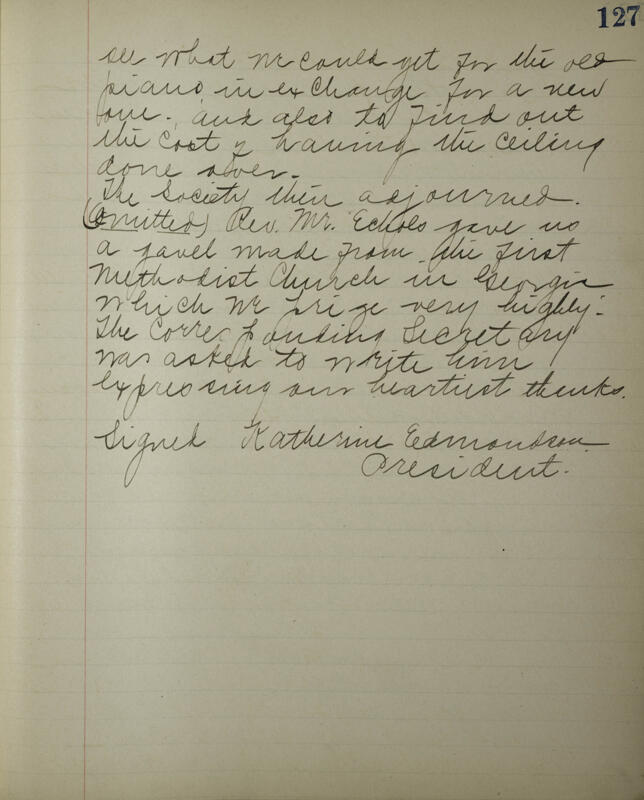 127
see what we could get for the old
piano in exchange for a new
one. and also to find out
the cost of having the ceiling
done over.
The Society then adjourned.
(Omitted) Rev. Mr. Echols gave us
a gavel made from the first
Methodist Church in Georgia
which we prize very highly.
The Corresponding Secretary
was asked to write him
expressing our heartiest thanks.
Signed Katherine Edmondson.
President.